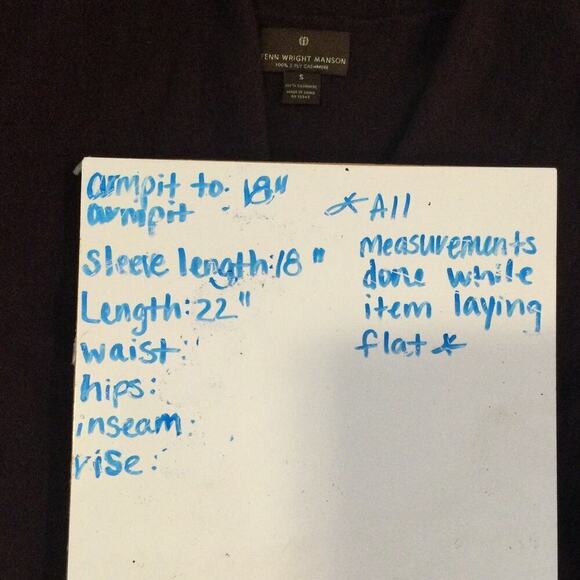 FENN WRIGHT MANSON
100% 2 PLY CASHMERE
S
100% CASHMERE
MADE IN CHINA
armpit to
armpit : 18"
sleeve length:18"
Length:22"
waist:
hips:
inseam:
rise:
*All
measurements
done while
item laying
flat*